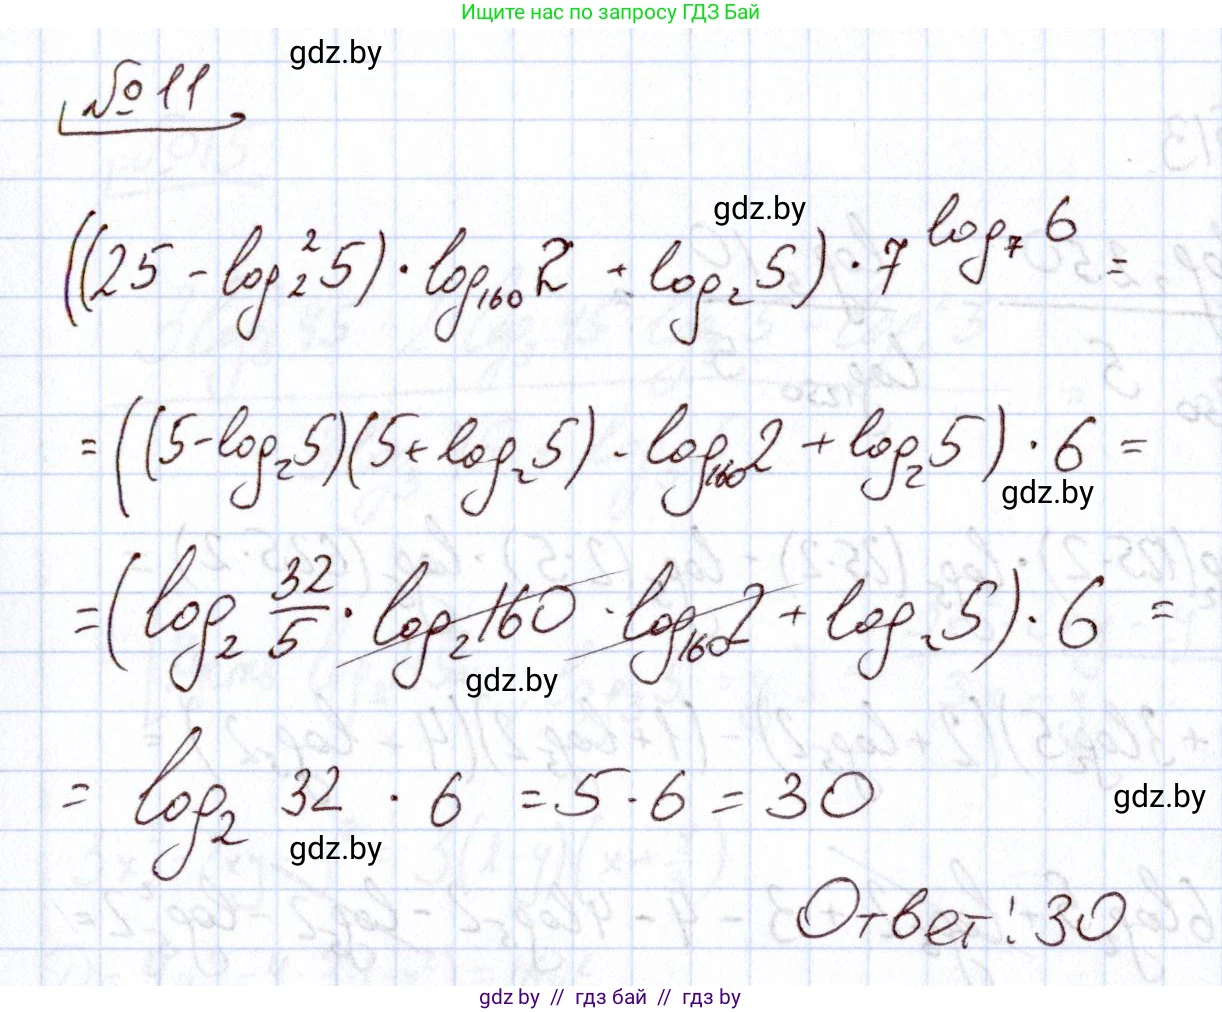 Ищите нас по запросу ГДЗ Бай
gdz.by
№ 11
gdz.by
((25 - log₂²5) · log₁₆₀2 + log₂5) · 7^(log₇6) =
= ((5-log₂5)(5+log₂5) · log₁₆₀2 + log₂5) · 6 =
gdz.by
= (log₂ 32/5 · log₂160 · log₁₆₀2 + log₂5) · 6 =
gdz.by
= log₂ 32 · 6 = 5 · 6 = 30
gdz.by
gdz.by
Ответ: 30
gdz.by // гдз бай // гдз by